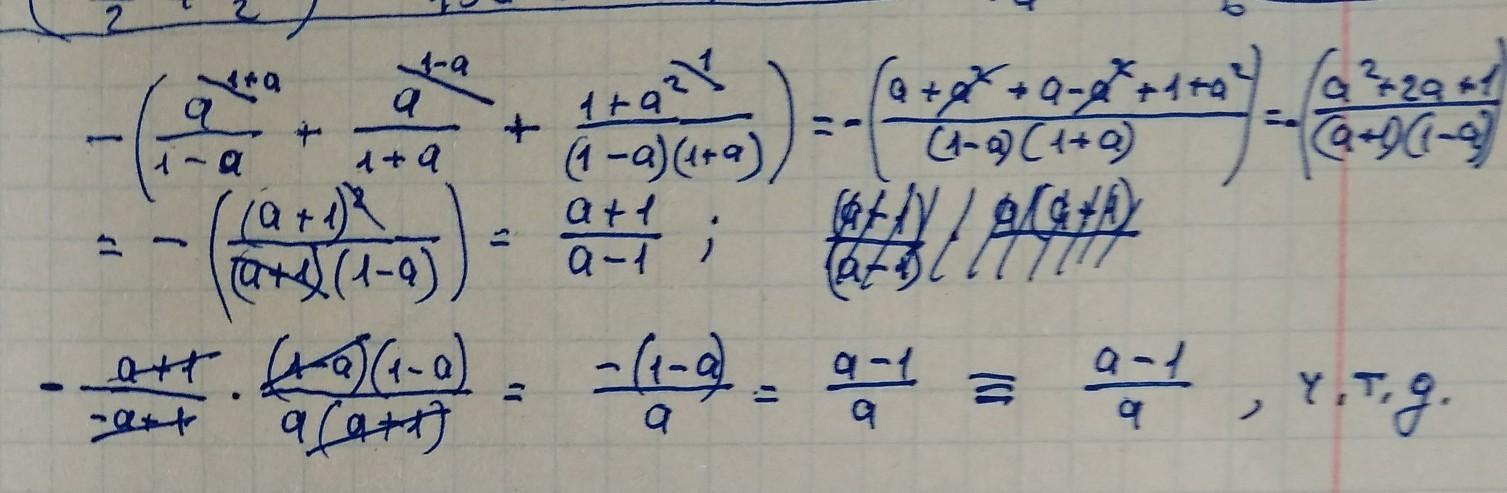 -(a^{1+a}/(1-a) + a^{1-a}/(1+a) + (1+a²)^{1}/((1-a)(1+a))) = -((a+a²+a-a²+1+a²)/((1-a)(1+a))) = -((a²+2a+1)/((a+1)(1-a)))
= -((a+1)²/((a+1)(1-a))) = (a+1)/(a-1) ;
- (a+1)/(-a+1) · ((1-a)(1-a))/(a(a+1)) = -(1-a)/a = (a-1)/a ≡ (a-1)/a , ч.т.д.